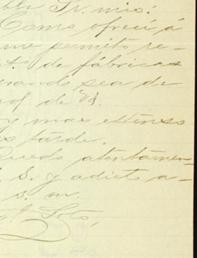 Sr. mio:
Como ofrecí á
me permito re-
de fábricas
sea de
of. de Vd.
y mas estenso
s tarde.
quedo atentamen-
S. S. y adicto a-
s. m.
Soto,